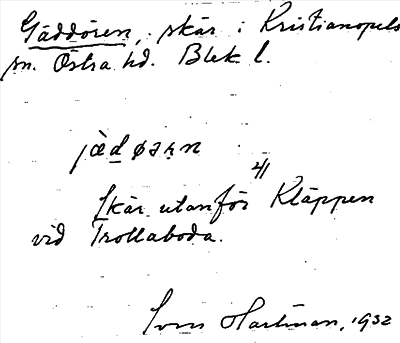 Gäddören, skär i Kristianopels
sn. Östra hd. Blek l.
Skär utanför Kläppen
vid Trollaboda.
Sven Hartman, 1932